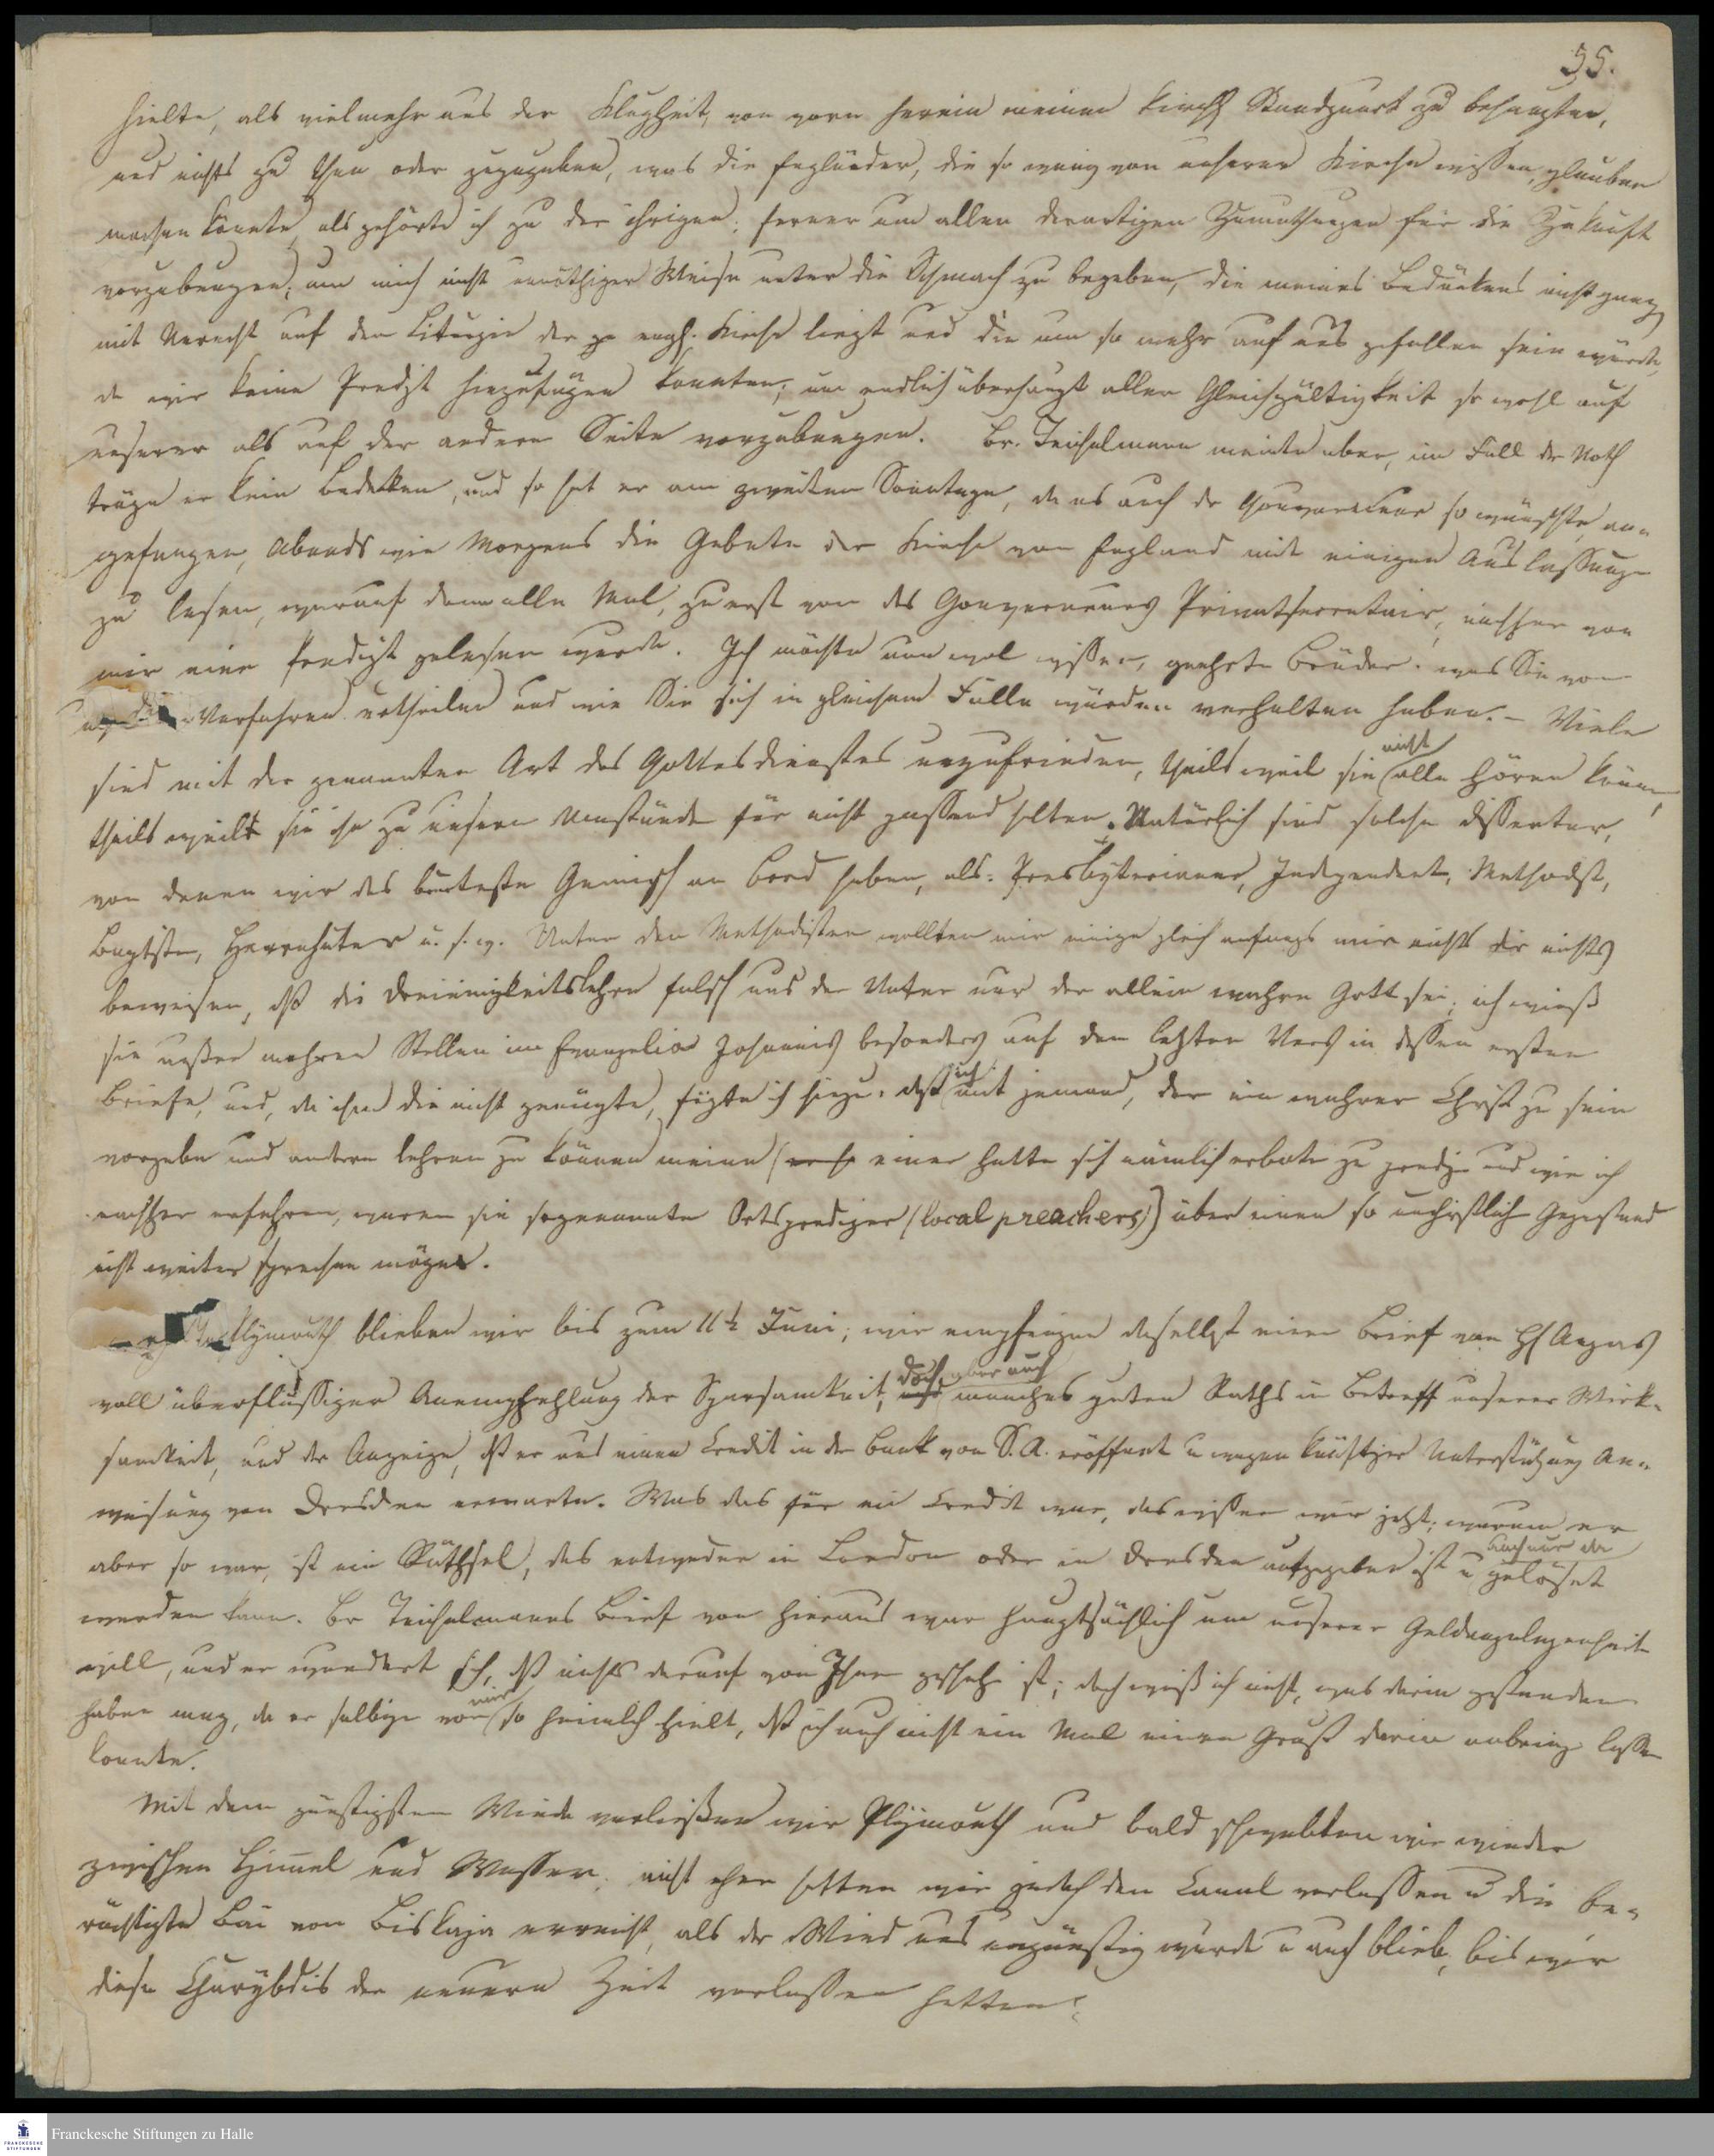 35.
hielte, als vielmehr aus der Klugheit, von vorn herein meinen kirchl Standpunct zu behaupten,
und nichts zu thun oder zuzugeben, was die Engländer, die so wenig von unserer Kirche wissen, glauben
machen könnte, als gehörte ich zu der ihrigen; ferner um allen derartigen Zumuthungen für die Zukunft
vorzubeugen; um mich nicht unnöthiger Weise unter die Schmach zu begeben, die meines Bedünkens nicht ganz
mit Unrecht auf der Liturgie der engl. Kirche liegt und die um so mehr auf uns gefallen sein würde,
da wir keine Predigt hinzufügen konnten; um endlich überhaupt aller Gleichgültigkeit so wohl auf
unserer als auf der andern Seite vorzubeugen. Br. Teichelmann meinte aber, im Fall der Noth
trüge er kein Bedenken, und so hat er am zweiten Sonntage, da es auch der Gouverneur so wünschte, an-
gefangen, Abends wie Morgens die Gebete der Kirche von England mit einigen Auslassungen
zu lesen, worauf dann alle Mal, zuerst von des Gouverneurs Privatsecretair, nachher von
mir eine Predigt gelesen wurde. Ich möchte nun wol wissen, geehrte Brüder, was Sie von
Verfahren urtheilen und wie Sie sich in gleichem Falle würden verhalten haben. – Viele
sind mit der genannten Art des Gottesdienstes unzufrieden, theils weil sie nicht alle hören können,
theils weil sie ihn zu unsern Umständen für nicht passend halten. Natürlich sind solche Dissenter,
von denen wir das bunteste Gemisch an Bord haben, als: Presbyterianer, Independent, Methodist,
Baptisten, Herrnhuter u. s. w. Unter den Methodisten wollten mir einige gleich anfangs mir nichts dir nichts
beweisen, dß die Dreieinigkeitslehre falsch und der Vater nur der allein wahre Gott sei; ich wieß
sie außer mehren Stellen im Evangelio Johannis besonders auf den letzten Vers in dessen ersten
Briefe, und, da ihnen die nicht genügte, fügte ich hinzu, daß ich mit jemand, der ein wahrer Christ zu sein
vorgebe und andern lehren zu können meine (einer hatte sich nämlich erboten zu predigen und wie ich
nachher erfahren, waren sie sogenannte Ortsprediger (local preachers)) über einen so unchristlichen Gegenstand
nicht weiter sprechen möge.
In Plymouth blieben wir bis zum 11t Juni; wir empfingen daselbst einen Brief von H Angas
voll überflüssiger Anempfehlung der Sparsamkeit, doch aber auch manches guten Raths in Betreff unserer Wirk-
samkeit, und der Anzeige, dß er uns einen Credit in der Bank von S. A. eröffnet u wegen künftiger Unterstützung An-
weisung von Dresden erwarte. Was das für ein Credit war, das wissen wir jetzt; warum er
aber so war, ist ein Räthsel, das entweder in London oder in Dresden aufgegeben ist u auch nur da gelöset
werden kann. Br Teichelmanns Brief von hieraus war hauptsächlich um unserer Geldangelegenheiten
will, und er wundert sich, dß nichts darauf von Ihnen geschehen ist; doch weiß ich nicht, was darin gestanden
haben mag, da er selbige vor mir so heimlich hielt, dß ich auch nicht ein Mal einen Gruß darin anbringen lassen
konnte.
Mit dem günstigsten Winde verließen wir Plymouth und bald schwebten wir wieder
zwischen Himmel und Wasser; nicht eher hatten wir jedoch den Canal verlassen u die be-
rüchtigte Bai von Biskaja erreicht, als der Wind uns ungünstig wurde u auch blieb, bis wir
diese Charybdis der neuern Zeit verlassen hatten.
Franckesche Stiftungen zu Halle